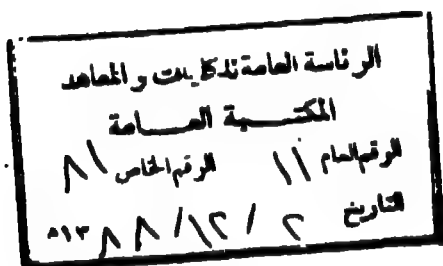 الرئاسة العامة للكليات والمعاهد
المكتبة العامة
الرقم العام ١١ الرقم الخاص ٨١
التاريخ ٢ / ١٢ / ٨٨ ١٣هـ